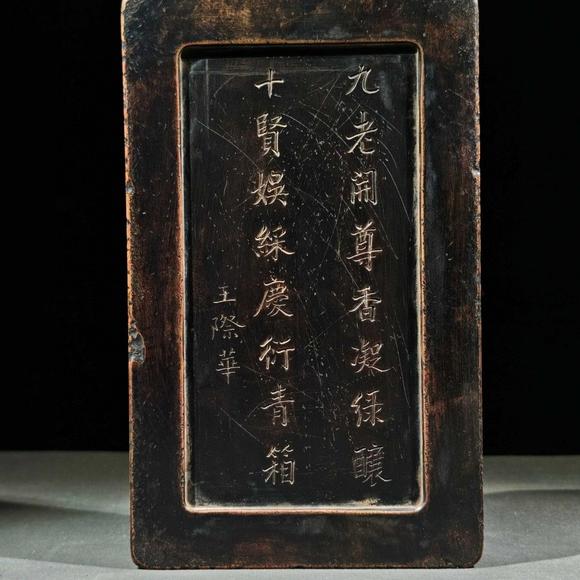 九老開尊香凝綠醸
十賢娛綵慶衍青箱
王際華